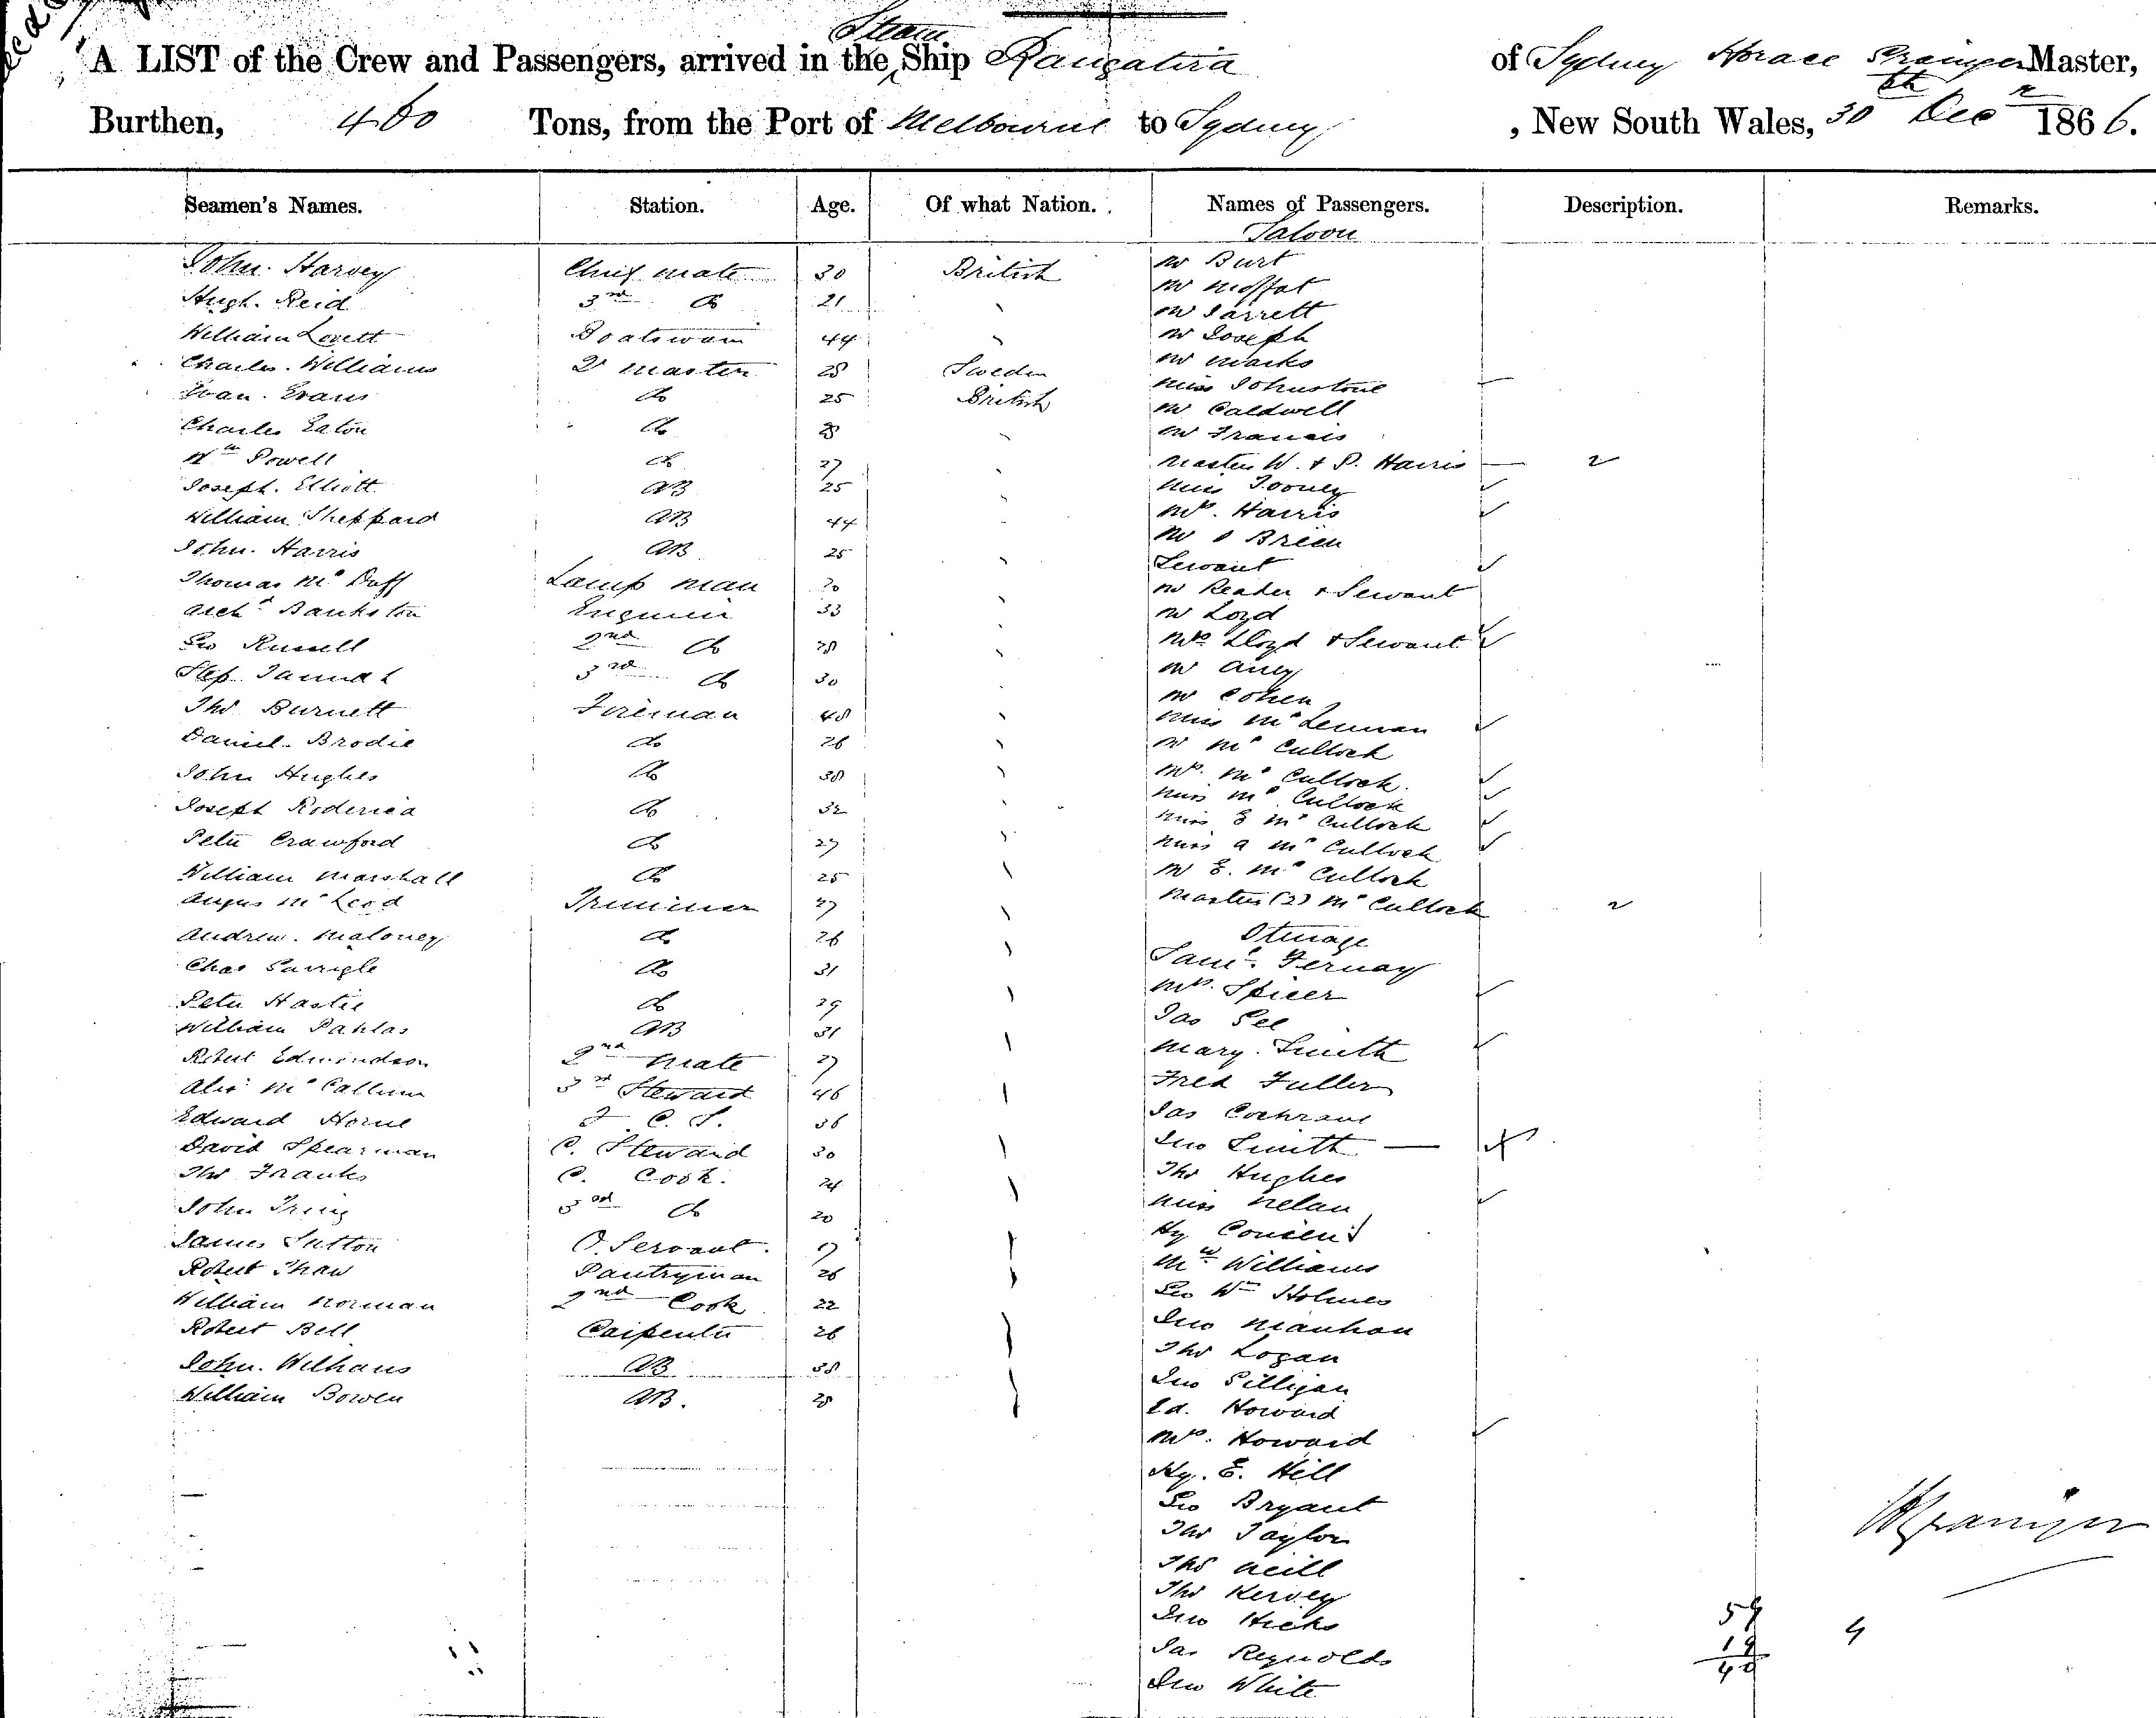 A LIST of the Crew and Passengers, arrived in the Steam Ship Rangatira of Sydney Horace Master,
Burthen, 460 Tons, from the Port of Melbourne to Sydney, New South Wales, 30th Decr 1866.
Seamen's Names. Station. Age. Of what Nation. Names of Passengers. Description. Remarks.
Saloon
John Harvey Chief mate 30 British Mr Burt
Hugh Reid 3rd do 21 Mr Moffat
Mr Jarrett
William Lovett Boatswain 44 Mr Joseph
Charles Williams Q master 28 Sweden Mr Marks
Miss Johnstone
Evan Evans do 25 British Mr Caldwell
Charles Eaton do 28 Mr Francis
Wm Powell do 27 Masters W. & P. Harris 2
Joseph Elliott AB 25 Miss
William Sheppard AB 44 Mrs Harris
Mr O Brien
John Harris AB 25 Servant
Thomas Mc Duff Lamp man Mr Reader & Servant
Archd Bankston Engineer 33 Mr Loyd
Geo Russell 2nd do 28 Mrs Lloyd & Servant
3rd do 30 Mr
Mr Cohen
Thos Burnett Fireman 48 Miss McLennan
Daniel Brodie do 26 Mr Mc Culloch
John Hughes do 38 Mrs Mc Culloch
Miss Mc Culloch
Joseph do 32 Miss E Mc Culloch
Peter Crawford do 27 Miss A Mc Culloch
William Marshall do 25 Mr E. Mc Culloch
Angus McLeod Trimmer 27 Masters (2) Mc Culloch 2
Andrew Maloney do 26 Steerage
Chas do 31 Saml
Peter Hastie do 29 Mrs Spicer
William Pahlas AB 31 Jas
Robert Edmondson 2nd Mate 27 Mary Smith
Alexr Mc Callum 3rd Steward 46 Fred Fuller
Edward Horne F. C. S. 36 Jas Cochrane
David Spearman C. Steward 30 Jno Smith
Thos Franks C. Cook 24 Thos Hughes
John 3rd do 20 Miss Nelan
James Sutton O. Servant 17 Hy
Robert Shaw Pantryman 26 Williams
William Norman 2nd Cook 22 Geo Wm Holmes
Robert Bell Carpenter 26 Jno
Thos Logan
John Williams AB 38 Jno Gilligan
William Bowen AB. 28 Ed. Howard
Mrs. Howard
Hy. E. Hill
Geo Bryant
Thos Taylor
Thos Neill
Thos
Jno Hicks
Jas Reynolds
Jno White
59
19
40
4